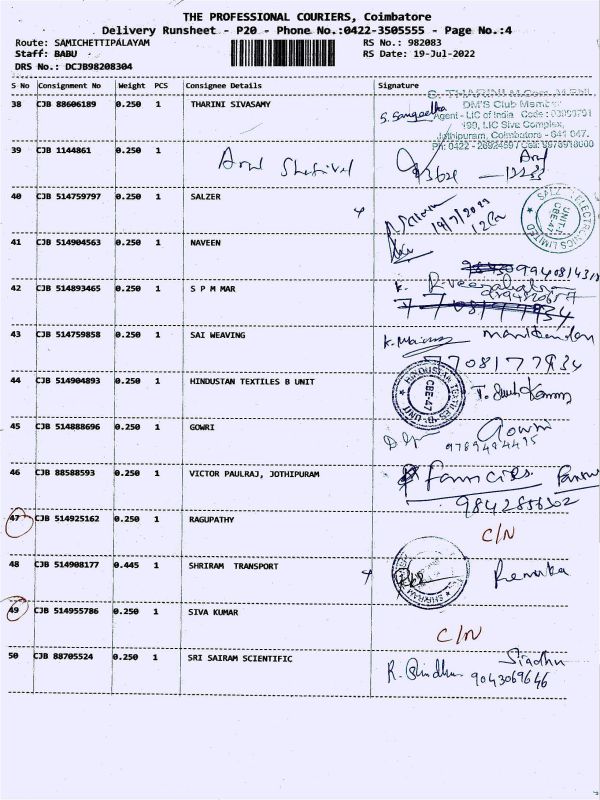 THE PROFESSIONAL COURIERS, Coimbatore
Delivery Runsheet - P20 - Phone No.:0422-3505555 - Page No.:4
Route: SAMICHETTIPALAYAM RS No.: 982083
Staff: BABU RS Date: 19-Jul-2022
DRS No.: DCJB98208304
S No Consignment No Weight PCS Consignee Details Signature
38 CJB 88606189 0.250 1 THARINI SIVASAMY
S. Sangeetha
DM'S Club Member
Agent - LIC of India Code :
190, LIC Siva Complex,
Jothipuram, Coimbatore - 641 047.
39 CJB 1144861 0.250 1
40 CJB 514759797 0.250 1 SALZER
19/7/2022
SALZER ELECTRONICS LIMITED
UNIT-I
CBE-47
41 CJB 514904563 0.250 1 NAVEEN
42 CJB 514893465 0.250 1 S P M MAR
43 CJB 514759858 0.250 1 SAI WEAVING
Manikandan
7708177934
44 CJB 514904893 0.250 1 HINDUSTAN TEXTILES B UNIT
HINDUSTAN TEXTILES 'B' UNIT
CBE-47
45 CJB 514888696 0.250 1 GOWRI
Gowri
9789494495
46 CJB 88588593 0.250 1 VICTOR PAULRAJ, JOTHIPURAM
9842856302
47 CJB 514925162 0.250 1 RAGUPATHY
C/N
48 CJB 514908177 0.445 1 SHRIRAM TRANSPORT
Renuka
49 CJB 514955786 0.250 1 SIVA KUMAR
C/N
50 CJB 88705524 0.250 1 SRI SAIRAM SCIENTIFIC
Sindhu
9043069646